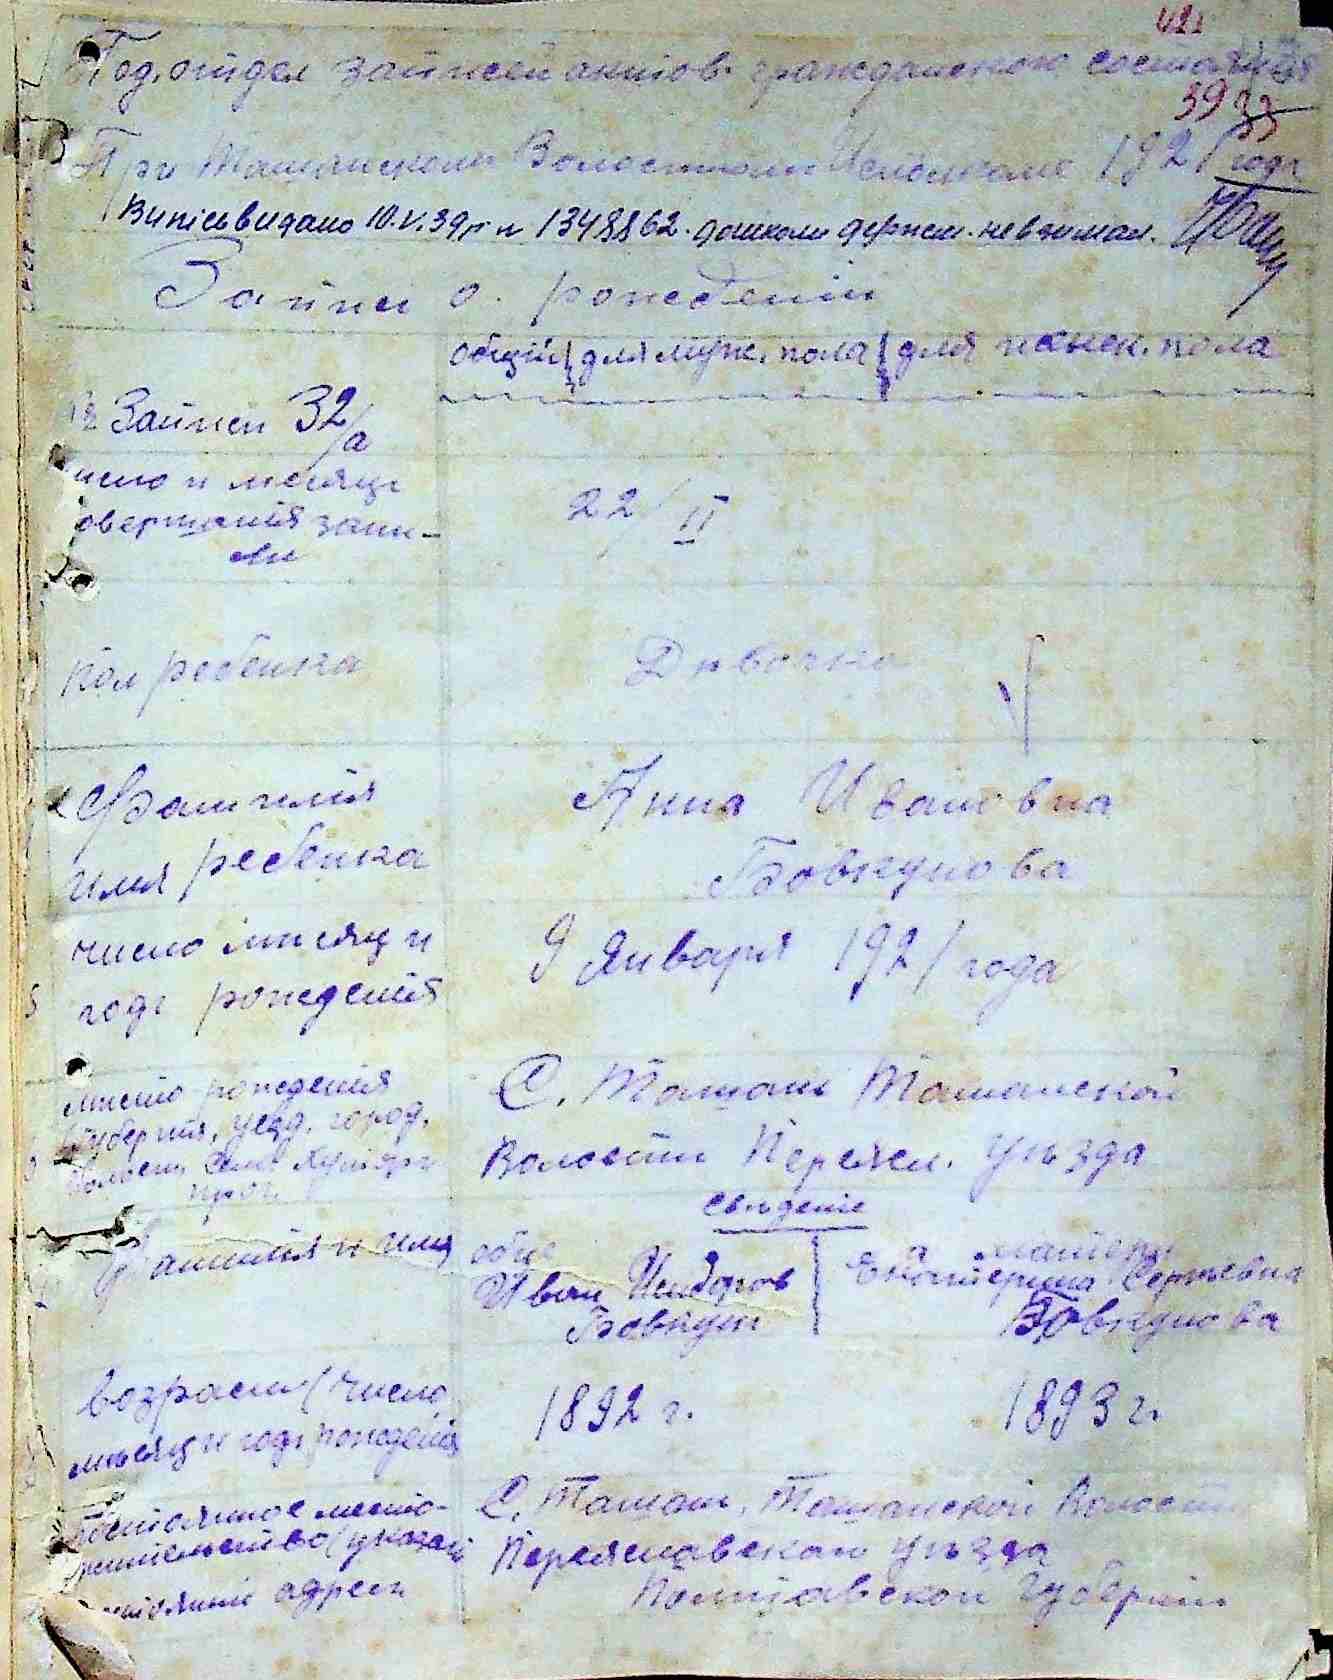 421
Под,отдел записей актов гражданского состояния
39 33
При Ташанском Волостном Исполкоме 1921 года
Випісь видано 10.V.39 р. № 1348862. держм. не взимал.
Запись о рождении
общій для муж. пола для женск. пола
№ Записи 32/а
число и месяць
совершенія запи-
си
22/II
Пол ребенка
Дѣвочка
Фамилія
имя ребенка
Анна Ивановна
Бовкунова
число мѣсяц и
годъ рожденія
9 Января 1921 года
мѣсто рожденія
Губернія, уезд, город,
Волость Село Хуторъ
проч.
С. Ташань Ташанской
Волости Переясл. уѣзда
Свѣденіе
Фамилія и имя
отце
Иван Исидоров
Бовкун
а матери
Екатерина Сергѣевна
Бовкунова
возраст (число
мѣсяц и годъ рожденія
1892 г.
1893 г.
Постоянное место-
жительство (указать
адрес
С. Ташань, Ташанской Волости
Переяславскаго уѣзда
Полтавской Губерніи